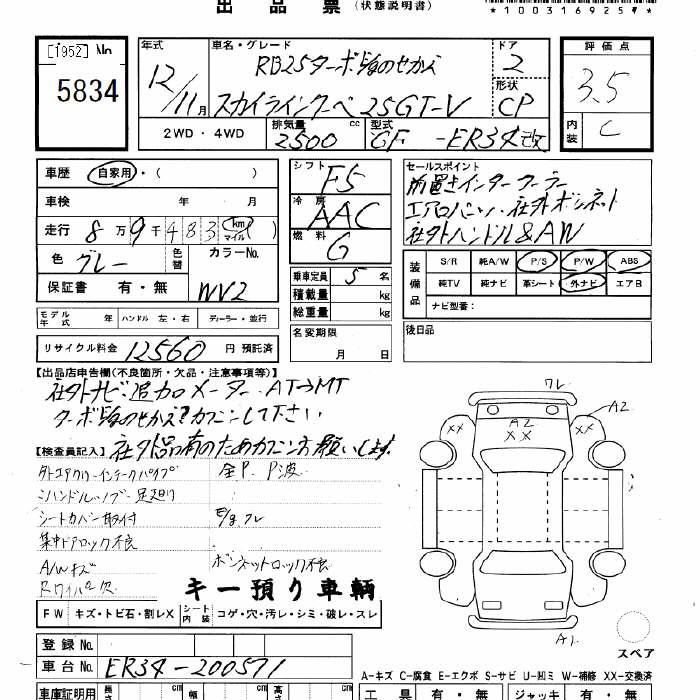 出品票（状態説明書）
*1003169259*
[1952] No
5834
年式
12/11月
車名・グレード
RB25ターボ
スカイラインクーペ 25GT-V
ドア
2
形状
CP
2WD・4WD
排気量
2500 cc
型式
GF -ER34改
評価点
3.5
内装
C
車歴 自家用・( )
車検 年 月
走行 8万9千483 (km マイル)
色 グレー 色替
カラーNo.
WV2
保証書 有・無
モデル年式 年 ハンドル 左・右 ディーラー・並行
リサイクル料金 12560 円 預託済
シフト
F5
冷房
AAC
燃料
G
乗車定員 5 名
積載量 kg
総重量 kg
名変期限
月 日
セールスポイント
前置きインタークーラー
エアロバンパー 社外ボンネット
社外ハンドル&AW
装備品
S/R 純A/W P/S P/W ABS
純TV 純ナビ 革シート 外ナビ エアB
ナビ型番：
後日品
【出品店申告欄(不良箇所・欠品・注意事項等)】
社外ナビ 追加メーター AT→MT
【検査員記入】社外品有のため カクニンお願いします
シートカバー取付
集中ドアロック不良
ボンネットロック不良
A/Wキズ
Rワイパー欠
キー預り車輌
FW キズ・トビ石・割レX シート内装 コゲ・穴・汚レ・シミ・破レ・スレ
登録No.
車台No. ER34-200571
車庫証明用 長さ cm 幅 cm 高さ cm
ワレ
A2
A2
XX
XX
XX
A1
スペア
A-キズ C-腐食 E-エクボ S-サビ U-凹ミ W-補修 XX-交換済
工具 有・無 ジャッキ 有・無